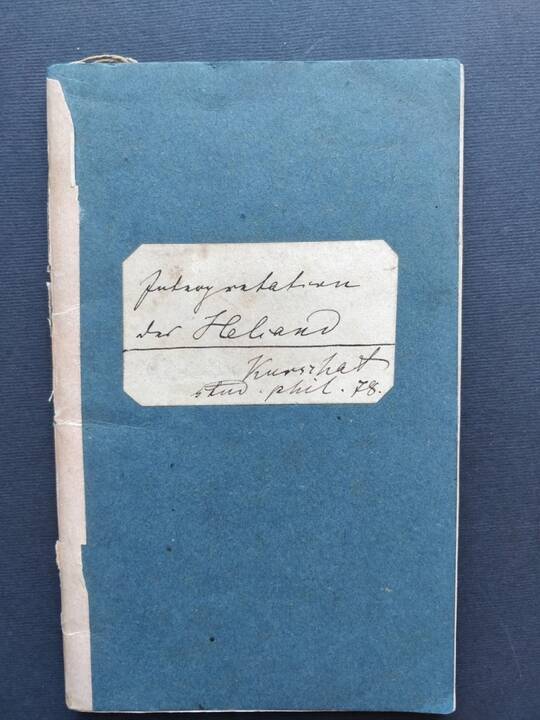 Interpretation
des Heliand
Kurschat
stud. phil. 78.